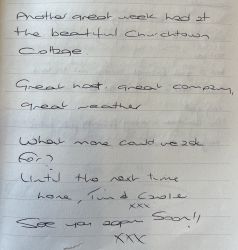 Another great week had at
the beautiful Churchtown
Cottage
Great host, great company,
great weather
What more could we ask
for?
Until the next time
Love, Tim & Carole
xxx
See you again Soon!!
xxx